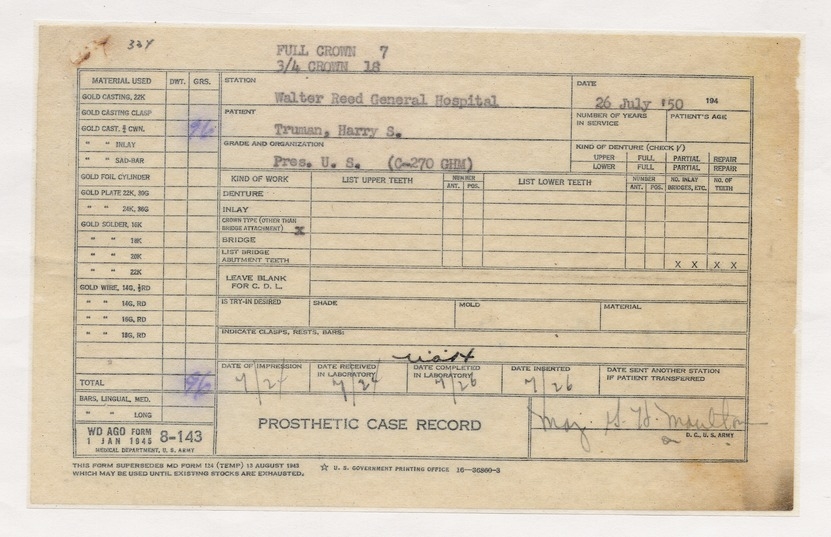 324
FULL CROWN 7
3/4 CROWN 18
MATERIAL USED DWT. GRS.
STATION
Walter Reed General Hospital
DATE
26 July '50 194
GOLD CASTING, 22K
GOLD CASTING CLASP
GOLD CAST. ¾ CWN. 96
" " INLAY
" " SAD-BAR
PATIENT
Truman, Harry S.
NUMBER OF YEARS IN SERVICE
PATIENT'S AGE
GRADE AND ORGANIZATION
Pres. U. S. (C-270 GHM)
KIND OF DENTURE (CHECK √)
UPPER FULL PARTIAL REPAIR
LOWER FULL PARTIAL REPAIR
GOLD FOIL CYLINDER
GOLD PLATE 22K, 30G
" " 24K, 36G
GOLD SOLDER, 16K
" " 18K
" " 20K
" " 22K
GOLD WIRE, 14G, ½RD
" " 14G, RD
" " 16G, RD
" " 18G, RD
TOTAL 96
BARS, LINGUAL, MED.
" " LONG
KIND OF WORK LIST UPPER TEETH NUMBER ANT. POS. LIST LOWER TEETH NUMBER ANT. POS. NO. INLAY BRIDGES, ETC. NO. OF TEETH
DENTURE
INLAY
CROWN TYPE (OTHER THAN BRIDGE ATTACHMENT) X
BRIDGE
LIST BRIDGE ABUTMENT TEETH X X X X
LEAVE BLANK FOR C. D. L.
IS TRY-IN DESIRED SHADE MOLD MATERIAL
INDICATE CLASPS, RESTS, BARS:
DATE OF IMPRESSION
7/24
DATE RECEIVED IN LABORATORY
7/24
DATE COMPLETED IN LABORATORY
7/26
DATE INSERTED
7/26
DATE SENT ANOTHER STATION IF PATIENT TRANSFERRED
WD AGO FORM 8-143
1 JAN 1945
MEDICAL DEPARTMENT, U. S. ARMY
PROSTHETIC CASE RECORD
Maj. S. B. Moulton
D. C., U. S. ARMY
THIS FORM SUPERSEDES MD FORM 124 (TEMP) 13 AUGUST 1943
WHICH MAY BE USED UNTIL EXISTING STOCKS ARE EXHAUSTED.
☆ U. S. GOVERNMENT PRINTING OFFICE 16—36860-3